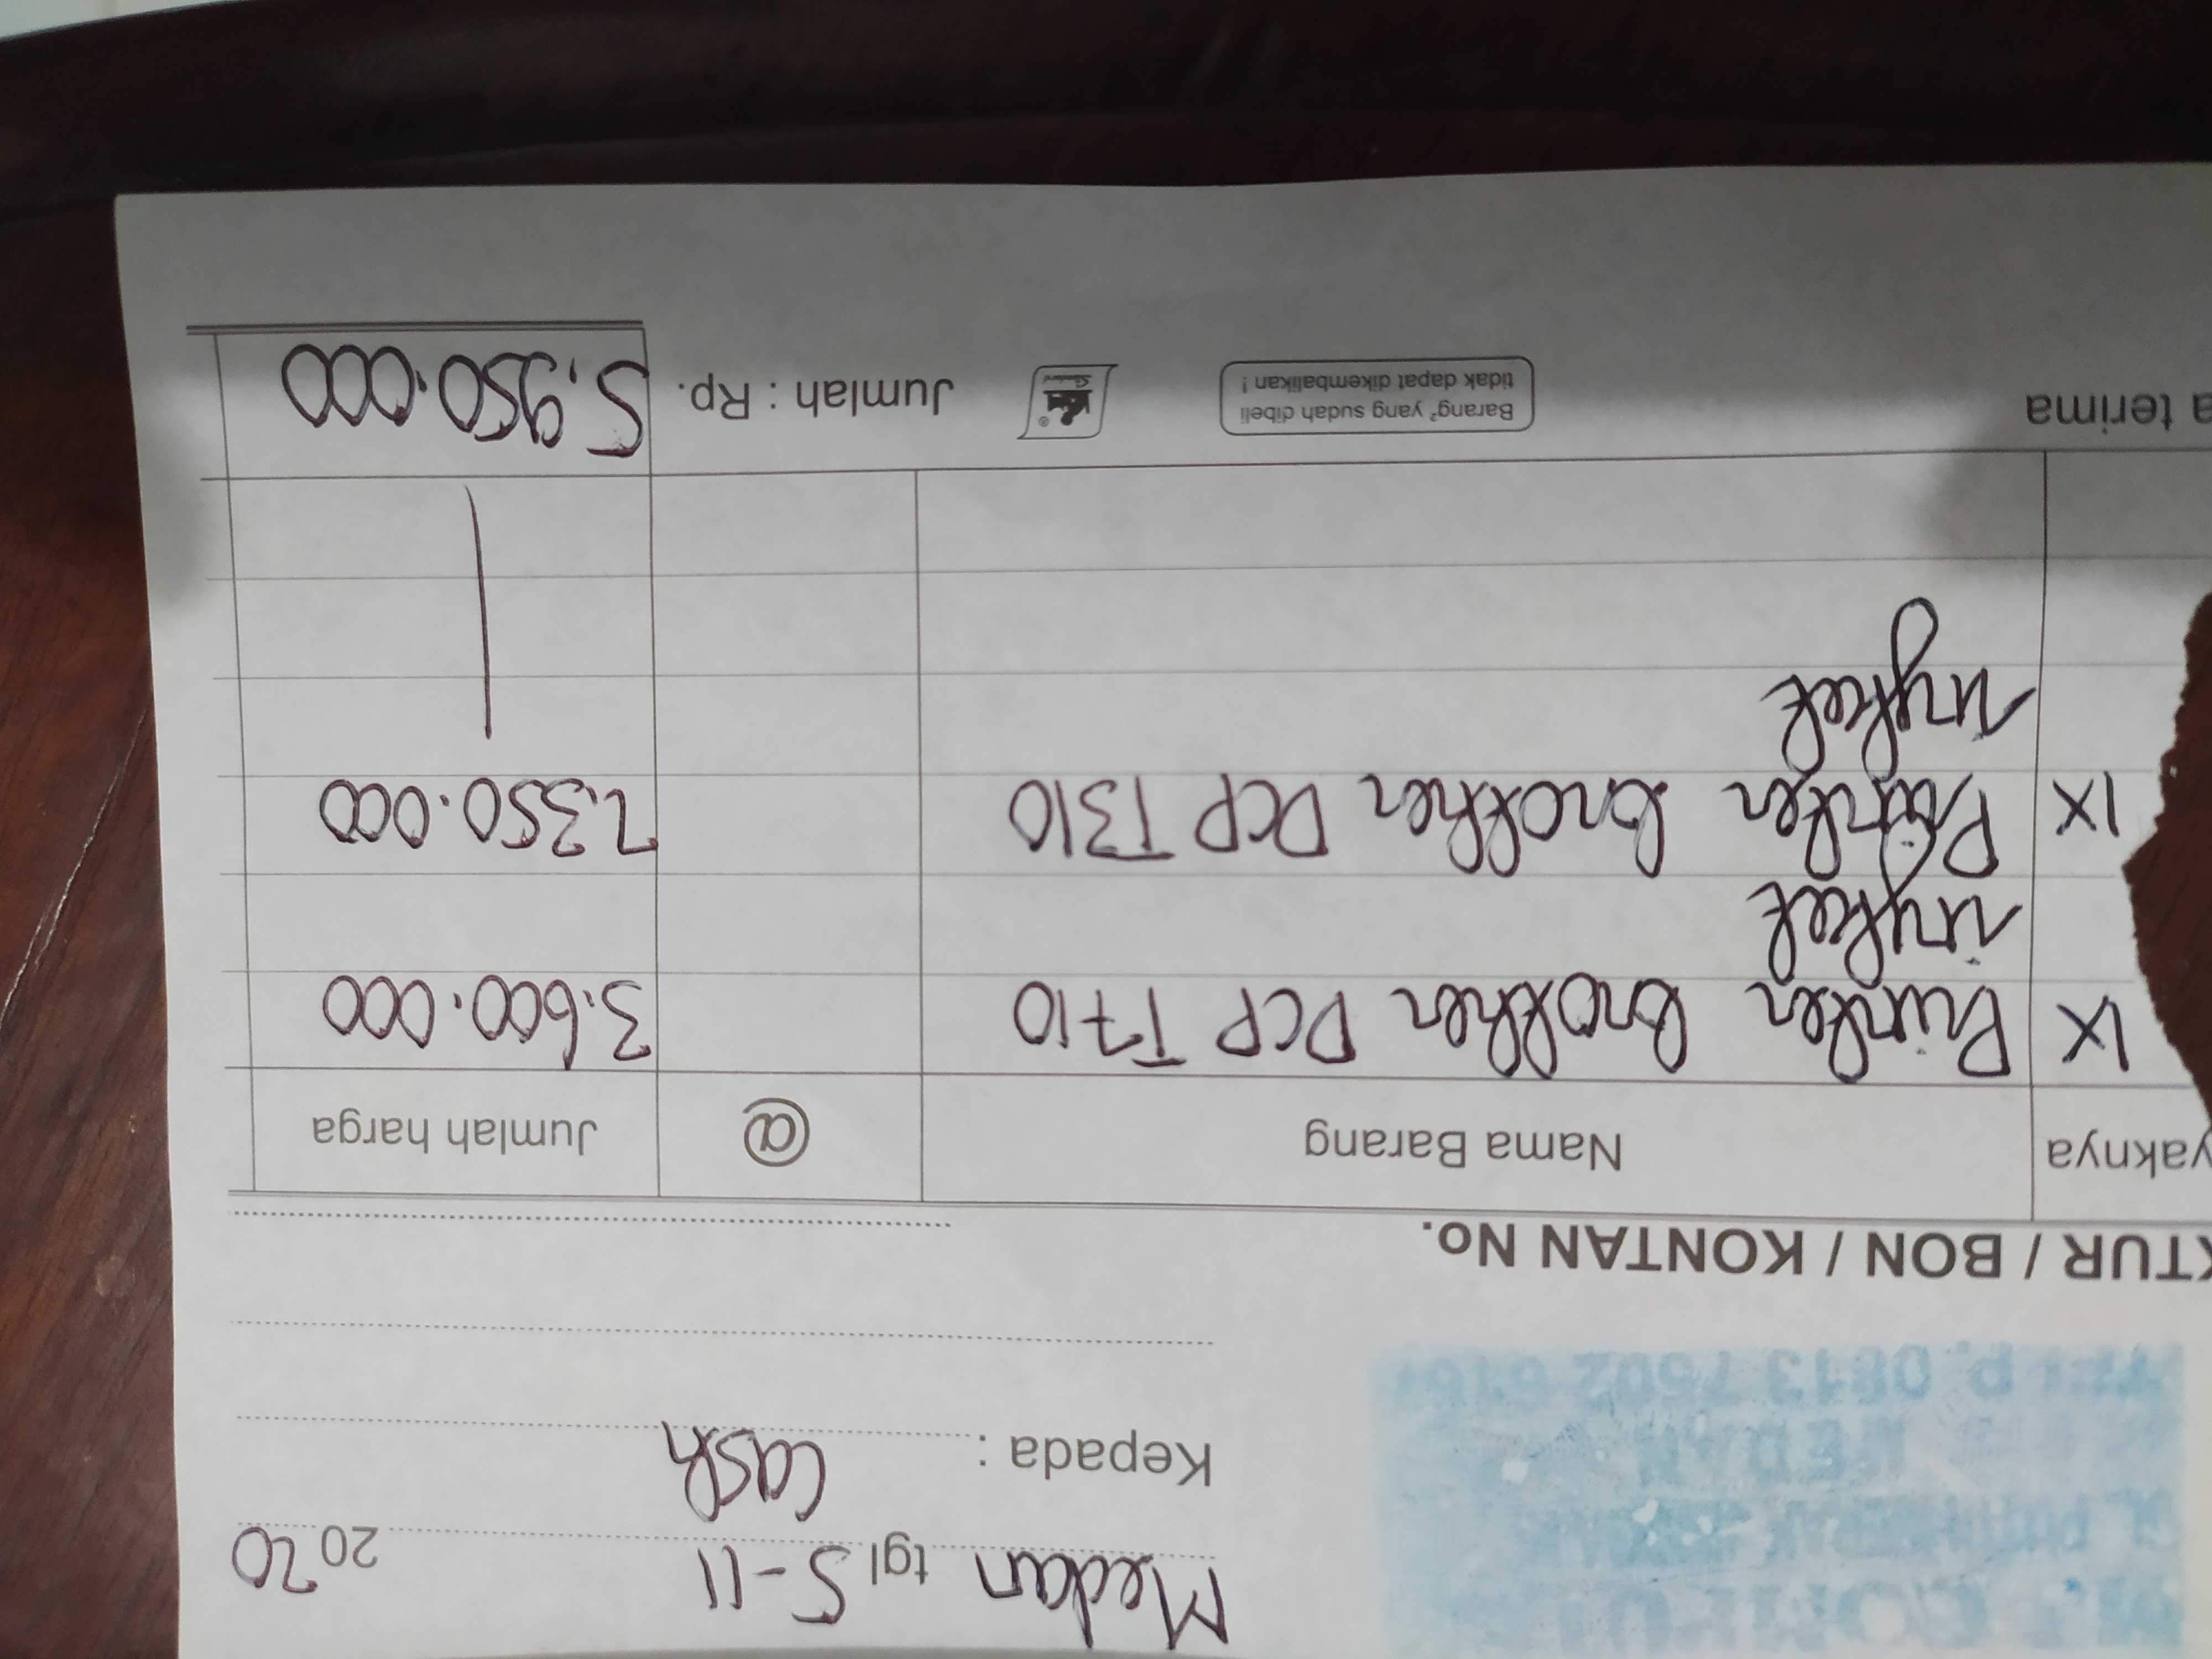 Medan tgl 5-11 2020
Kepada : Cash
MEDAN
TELP. 0813 7602 616
KTUR / BON / KONTAN No.
yaknya Nama Barang @ Jumlah harga
1x Printer brother DCP T710 3.600.000
inkjet
1x Printer brother DCP T310 2.350.000
inkjet
a terima
Barang² yang sudah dibeli
tidak dapat dikembalikan !
Jumlah : Rp. 5.950.000